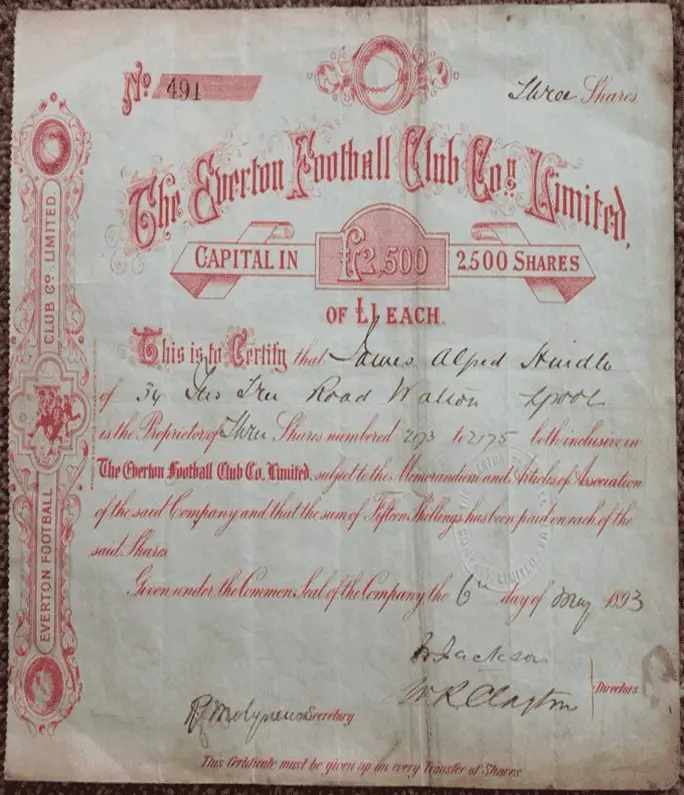 No 491
Three Shares
The Everton Football Club Coy. Limited,
CAPITAL IN £2,500 2,500 SHARES
OF £1 EACH.
This is to Certify that James Alfred Hindle
of 34 Road Walton Lpool
is the Proprietor of Three Shares numbered 2173 to 2175 both inclusive in
The Everton Football Club Co. Limited, subject to the Memorandum and Articles of Association
of the said Company and that the sum of Fifteen Shillings has been paid on each of the
said Shares
Given under the Common Seal of the Company the 6th day of May 1893
Jackson
W R Clayton
Directors
R Molyneux Secretary
This Certificate must be given up on every Transfer of Shares
EVERTON FOOTBALL CLUB Co. LIMITED.